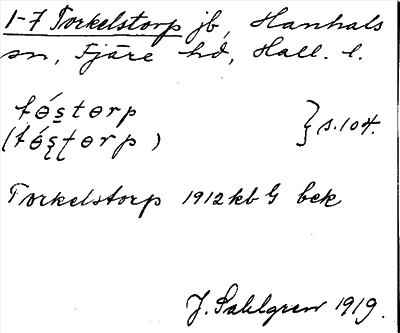 1-7 Torkelstorp jb, Hanhals
sn, Fjäre hd, Hall. l.
tóstorp } s. 104.
(tóstorp)
Torkelstorp 1912 kb G bek
J. Sahlgren 1919.